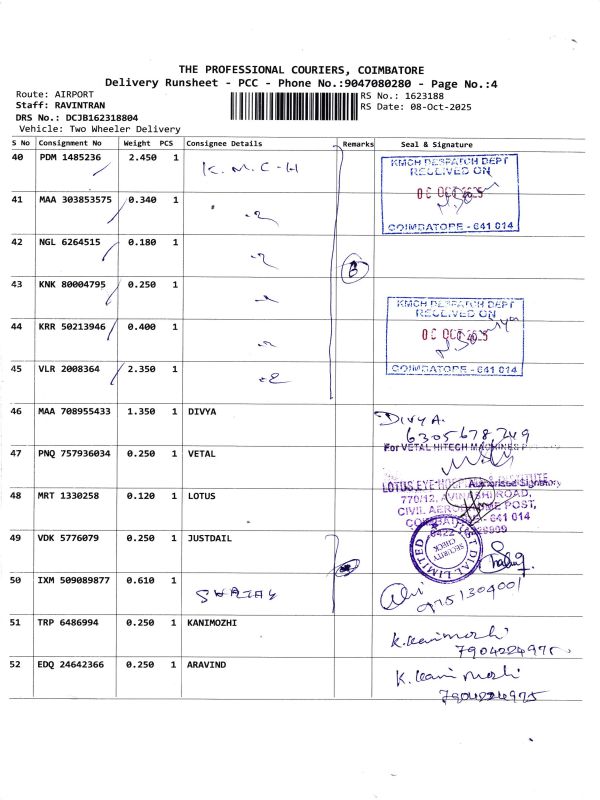 THE PROFESSIONAL COURIERS, COIMBATORE
Delivery Runsheet - PCC - Phone No.:9047080280 - Page No.:4
Route: AIRPORT
RS No.: 1623188
Staff: RAVINTRAN
RS Date: 08-Oct-2025
DRS No.: DCJB162318804
Vehicle: Two Wheeler Delivery
S No Consignment No Weight PCS Consignee Details Remarks Seal & Signature
40 PDM 1485236 2.450 1 K.M.C-H
KMCH DESPATCH DEPT
RECEIVED ON
COIMBATORE - 641 014
41 MAA 303853575 0.340 1
42 NGL 6264515 0.180 1
43 KNK 80004795 0.250 1
KMCH DESPATCH DEPT
RECEIVED ON
COIMBATORE - 641 014
44 KRR 50213946 0.400 1
45 VLR 2008364 2.350 1
46 MAA 708955433 1.350 1 DIVYA
DIVYA.
6305678249
47 PNQ 757936034 0.250 1 VETAL
For VETAL HITECH MACHINES
Authorised Signatory
48 MRT 1330258 0.120 1 LOTUS
LOTUS EYE HOSPITAL & INSTITUTE
770/12, AVINASHI ROAD,
CIVIL AERODROME POST,
COIMBATORE - 641 014
49 VDK 5776079 0.250 1 JUSTDAIL
JUST DIAL LIMITED
SECURITY
CHECK
50 IXM 509089877 0.610 1
9751304001
51 TRP 6486994 0.250 1 KANIMOZHI
K. Kanimozhi
7904224975
52 EDQ 24642366 0.250 1 ARAVIND
K. Kanimozhi
7904224975